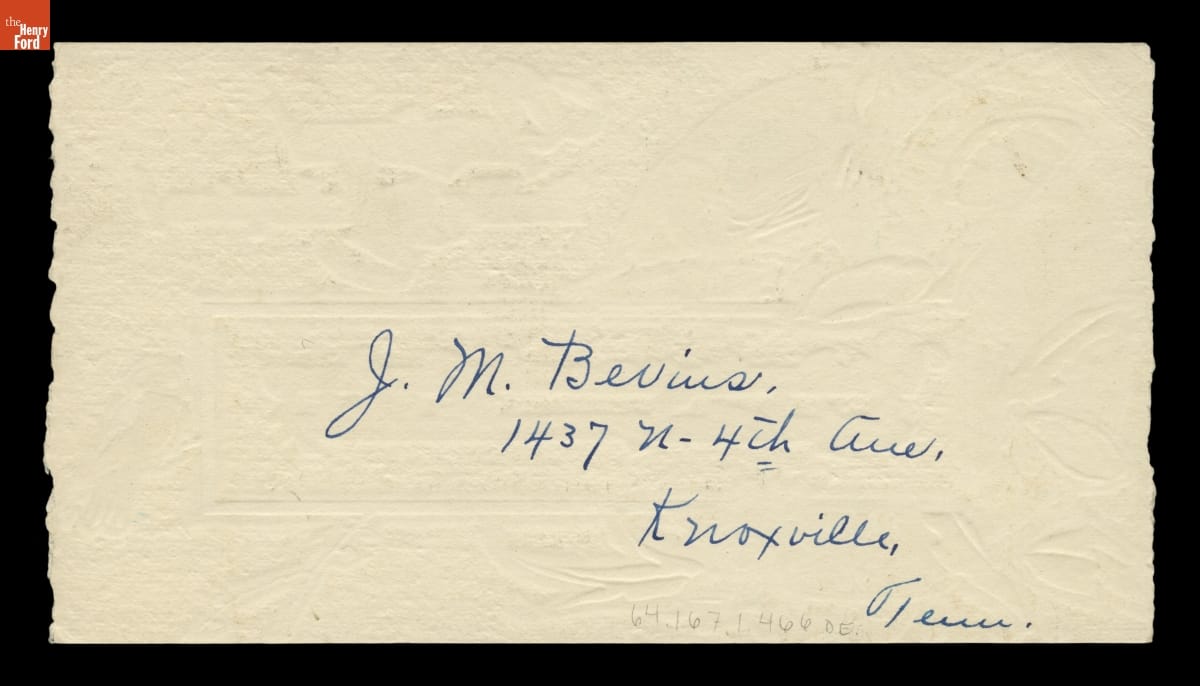 the
Henry
Ford
J. M. Bevins,
1437 N- 4th Ave,
Knoxville,
Tenn.
64.167.1.466 DE.